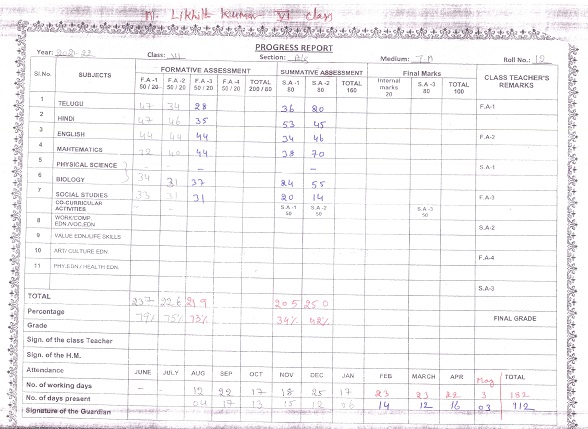 N. Likhith Kumar VI class
PROGRESS REPORT
Year: Class: VII Section: Medium: T.M Roll No.: 12
Sl.No. SUBJECTS FORMATIVE ASSESSMENT SUMMATIVE ASSESSMENT Final Marks CLASS TEACHER'S REMARKS
F.A-1 50 / 20 F.A-2 50 / 20 F.A-3 50 / 20 F.A-4 50 / 20 TOTAL 200 / 80 S.A -1 80 S.A -2 80 TOTAL 160 Internal marks 20 S.A-3 80 TOTAL 100
1 TELUGU 47 34 28 36 20 F.A-1
2 HINDI 47 46 35 53 45
3 ENGLISH 44 44 44 34 46 F.A-2
4 MAHTEMATICS 12 40 44 38 70
5 PHYSICAL SCIENCE - - - - S.A-1
6 BIOLOGY 34 31 37 24 55
7 SOCIAL STUDIES 33 31 31 20 14 F.A-3
CO-CURRICULAR ACTIVITIES S.A -1 50 S.A -2 50 S.A -3 50
8 WORK/COMP. EDN./VOC.EDN S.A-2
9 VALUE EDN./LIFE SKILLS
10 ART/ CULTURE EDN. F.A-4
11 PHY.EDN / HEALTH EDN.
S.A-3
TOTAL 237 226 219 205 250
Percentage 79% 75% 73% 34% 42% FINAL GRADE
Grade
Sign. of the class Teacher
Sign. of the H.M.
Attendance JUNE JULY AUG SEP OCT NOV DEC JAN FEB MARCH APR May TOTAL
No. of working days - - 12 22 17 18 25 17 23 23 22 3 182
No. of days present 04 17 13 15 12 06 14 12 16 03 112
Signature of the Guardian